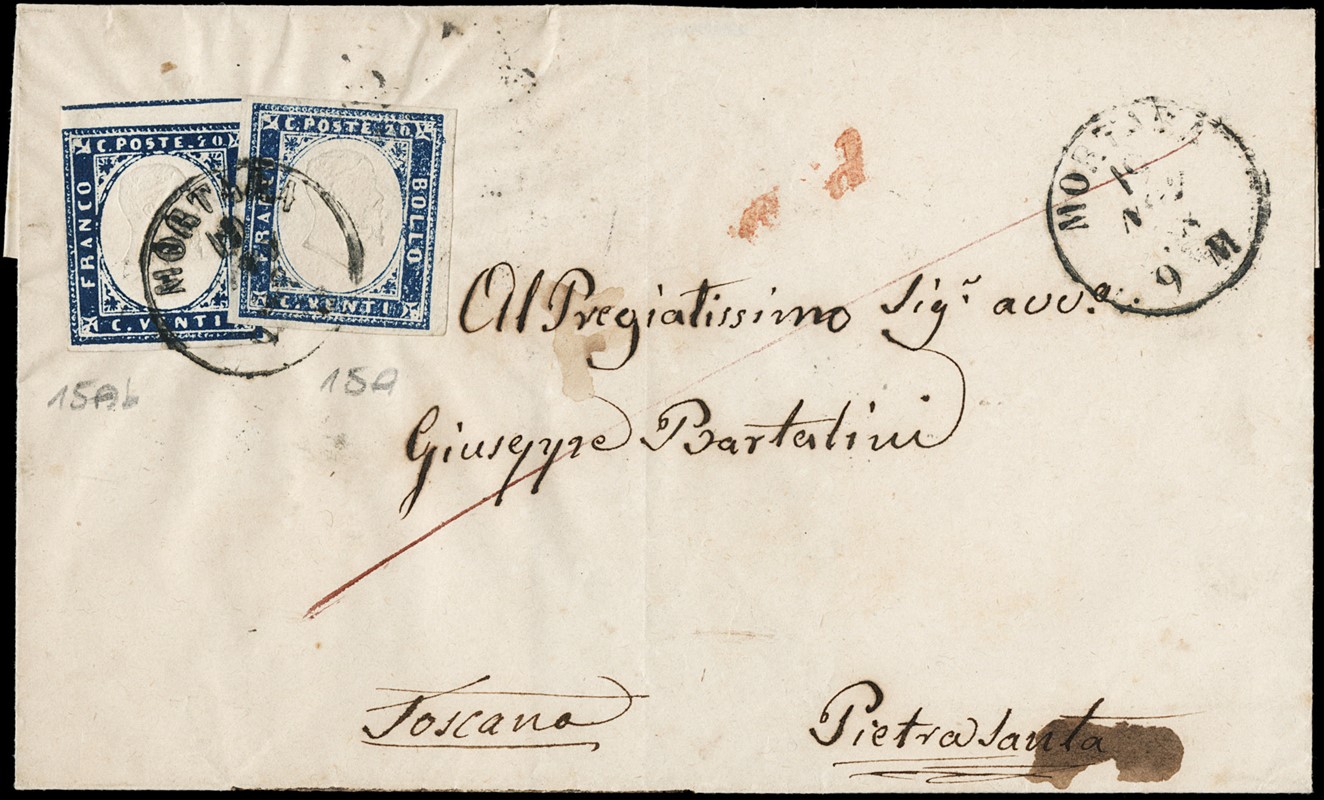 C. POSTE. 20
FRANCO
C. VENTI
C. POSTE. 20
FRAN
BOLLO
C. VENTI
MORTARA
MORTARA
9 M
15Ab
15A
Al Pregiatissimo Sigʳ avvº.
Giuseppe Bartalini
Toscana
Pietra Santa